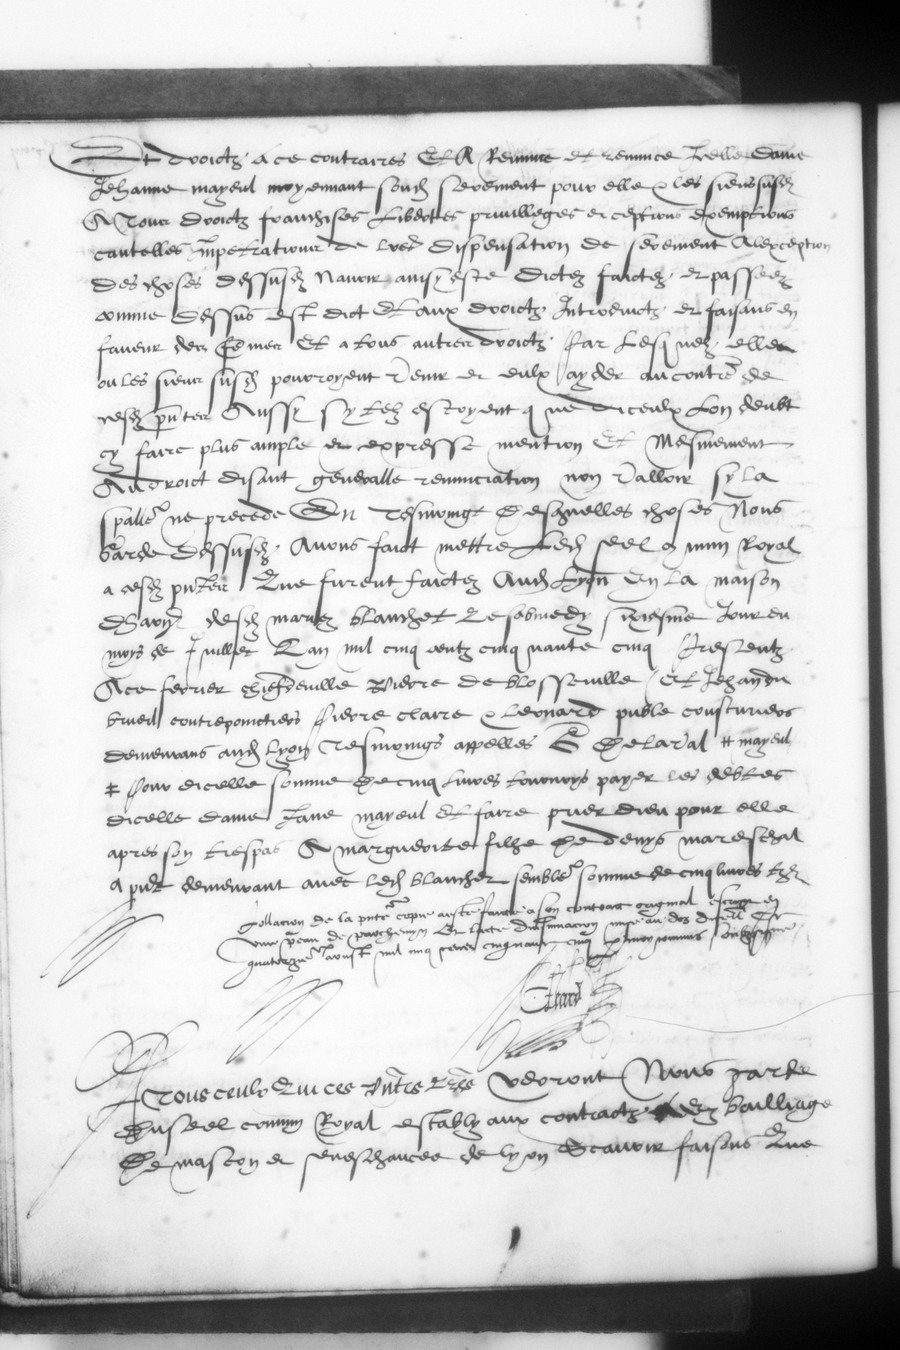 Et droictz a ce contraires Et A Renunce et renunce Icelle dame
Jehanne mayeul moyennant sond serement pour elle & les siens susd
A Tous droictz franchises Libertes privilleges exceptions Exemptions
cautelles Impetrations de lres dispensation de serement A lexception
des choses dessusd Navoir ainsy este dictez faictez et passeez
comme dessus est dict Et aux droictz Introduictz et faisans en
faveur des femmes Et a tous autres droictz Par Lesquelz elle
ou les siens susd pourroyent venir et eulx ayder au contre de
cesd pntes Aussy sy telz estoyent que diceulx Lon deubt
cy faire plus ample et expresse mention Et Mesmement
Au droict disant generalle renunciation non valloir sy la
spalle ne precede En Tesmoing desquelles choses Nous
garde dessusd Avons faict mettre Led seel commun Royal
a cesd pntes Que furent faictez Aud Lyon En la maison
desd mariez blanchet Le sixiesme Jour du
moys de Juillet Lan mil cinq centz cinquante cinq Presentz
A ce fevrier Pierre de blosseville Et Jehan du
brueil contrepoinctiers Pierre claire & Leonard puble cousturiers
demeurans aud Lyon Tesmoings appelles De laval # mayeul
# Pour dicelle somme de cinq livres tournoys payer les debtes
dicelle dame Jane mayeul Et faire prier dieu pour elle
apres son trespas A marguerite filhe de denys mareschal
A pnt demeurant avec led blanchet semble somme de cinq livres tz
Collation de la pnte coppie a este faicte a son contract original escript en
une peau de parchemyn Et lacte dinsinuation mise au doz
quatorze aoust mil cinq cens cinquante cinq
A Tous ceulx Qui ces pntes lres verront Nous garde
du seel commun Royal estably aux contractz Es bailliage
De mascon et seneschaucee de lyon Scavoir faisons Que